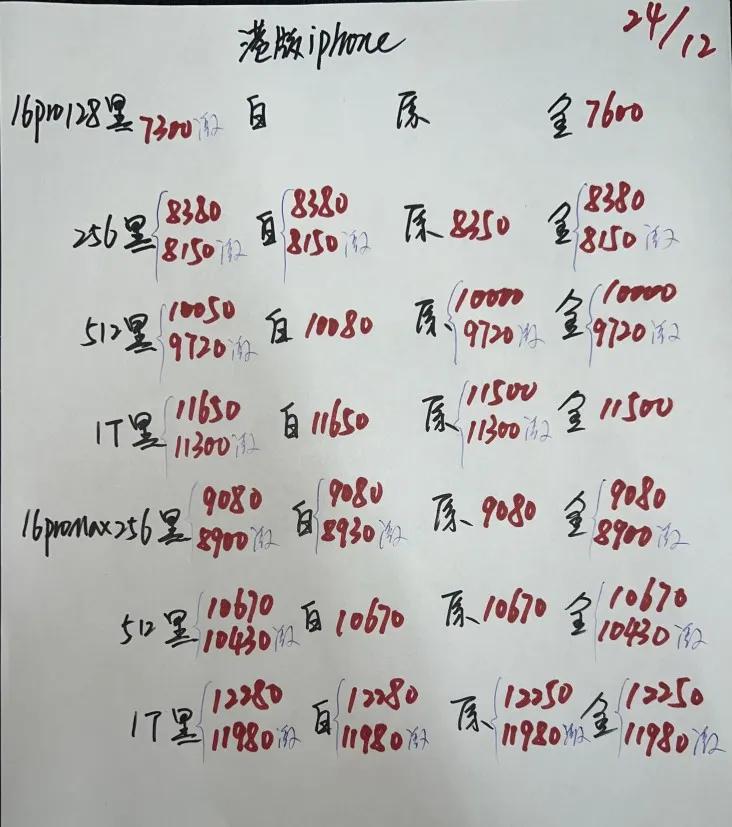 港版iphone 24/12
16pro128黑 7300激 白 原 金 7600
256黑 8380 白 8380 原 8350 金 8380
8150激 8150激 8150激
512黑 10050 白 10080 原 10000 金 10000
9720激 9720激 9720激
1T黑 11650 白 11650 原 11500 金 11500
11300激 11300激
16proMax256黑 9080 白 9080 原 9080 金 9080
8900激 8930激 8900激
512黑 10670 白 10670 原 10670 金 10670
10430激 10430激
1T黑 12280 白 12280 原 12250 金 12250
11980激 11980激 11980激 11980激